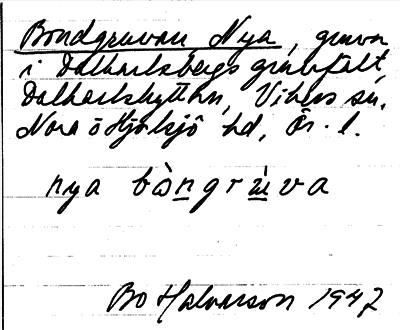 Bondgruvan Nya, gruva
i Dalkarlsbergs gruvfält,
Dalkarlshyttan, Vikers sn,
Nora o Hjulsjö hd, Ör. l.
nya bò̱ngrù̱va
Bo Halvarson 1947